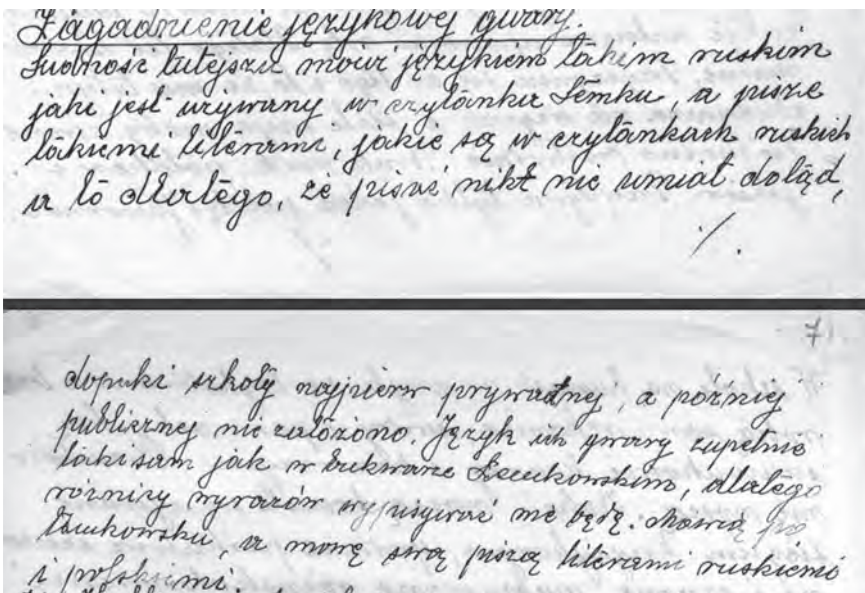 Zagadnienie językowej gwary.
Ludność tutejsza mówi językiem takim ruskim
jaki jest używany w czytanku Łemku, a pisze
takiemi literami, jakie są w czytankach ruskich
a to dlatego, że pisać nikt nie umiał dotąd,
./.
7
dopuki szkoły najpierw prywatnej, a później
publicznej nie założono. Język ich gwary zupełnie
taki sam jak w bukwarze Łemkowskim, dlatego
różnicy wyrazów wypisywać nie będę. Mówią po
łemkowsku, a mowę swą piszą literami ruskiemi
i polskiemi.